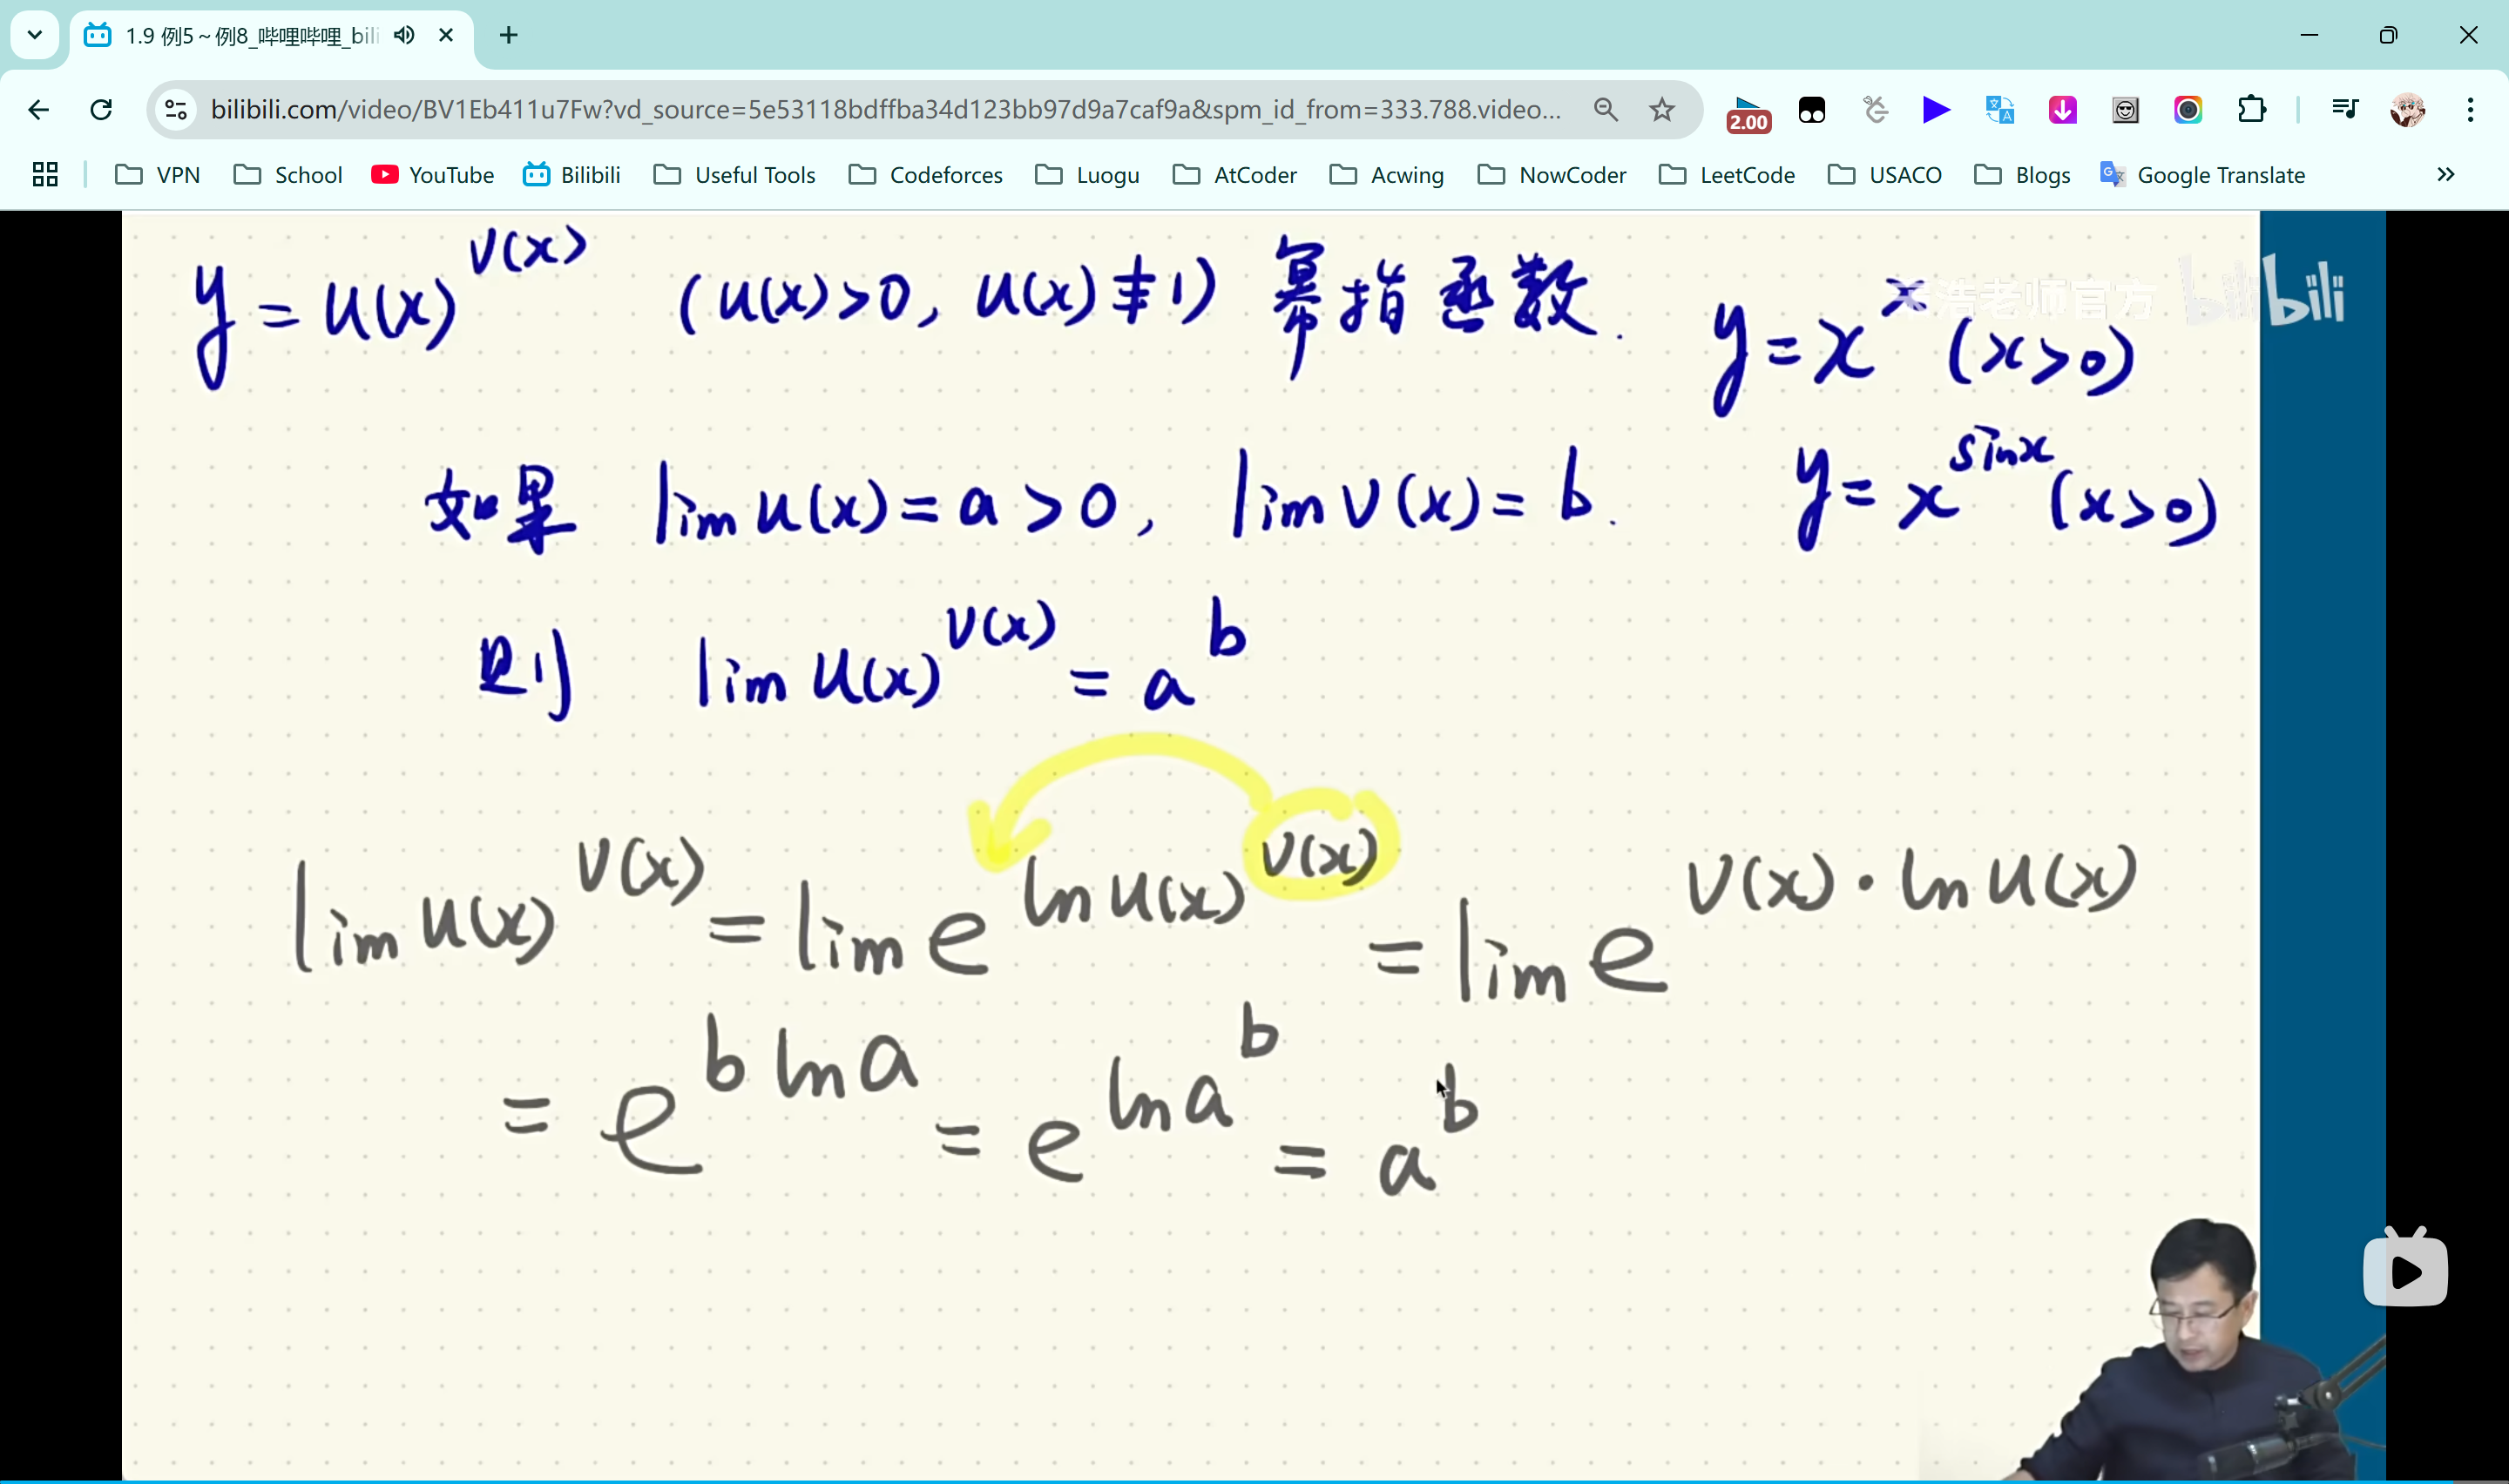 1.9 例5～例8_哔哩哔哩_bili
bilibili.com/video/BV1Eb411u7Fw?vd_source=5e53118bdffba34d123bb97d9a7caf9a&spm_id_from=333.788.video...
2.00
VPN School YouTube Bilibili Useful Tools Codeforces Luogu AtCoder Acwing NowCoder LeetCode USACO Blogs Google Translate
y = u(x)^{v(x)} (u(x)>0, u(x)≢1) 幂指函数.
浩老师官方 bilibili
y = x^x (x>0)
如果 lim u(x) = a > 0, lim v(x) = b.
y = x^{sinx} (x>0)
则 lim u(x)^{v(x)} = a^b
lim u(x)^{v(x)} = lim e^{ln u(x)^{v(x)}} = lim e^{v(x)·ln u(x)}
= e^{b ln a} = e^{ln a^b} = a^b